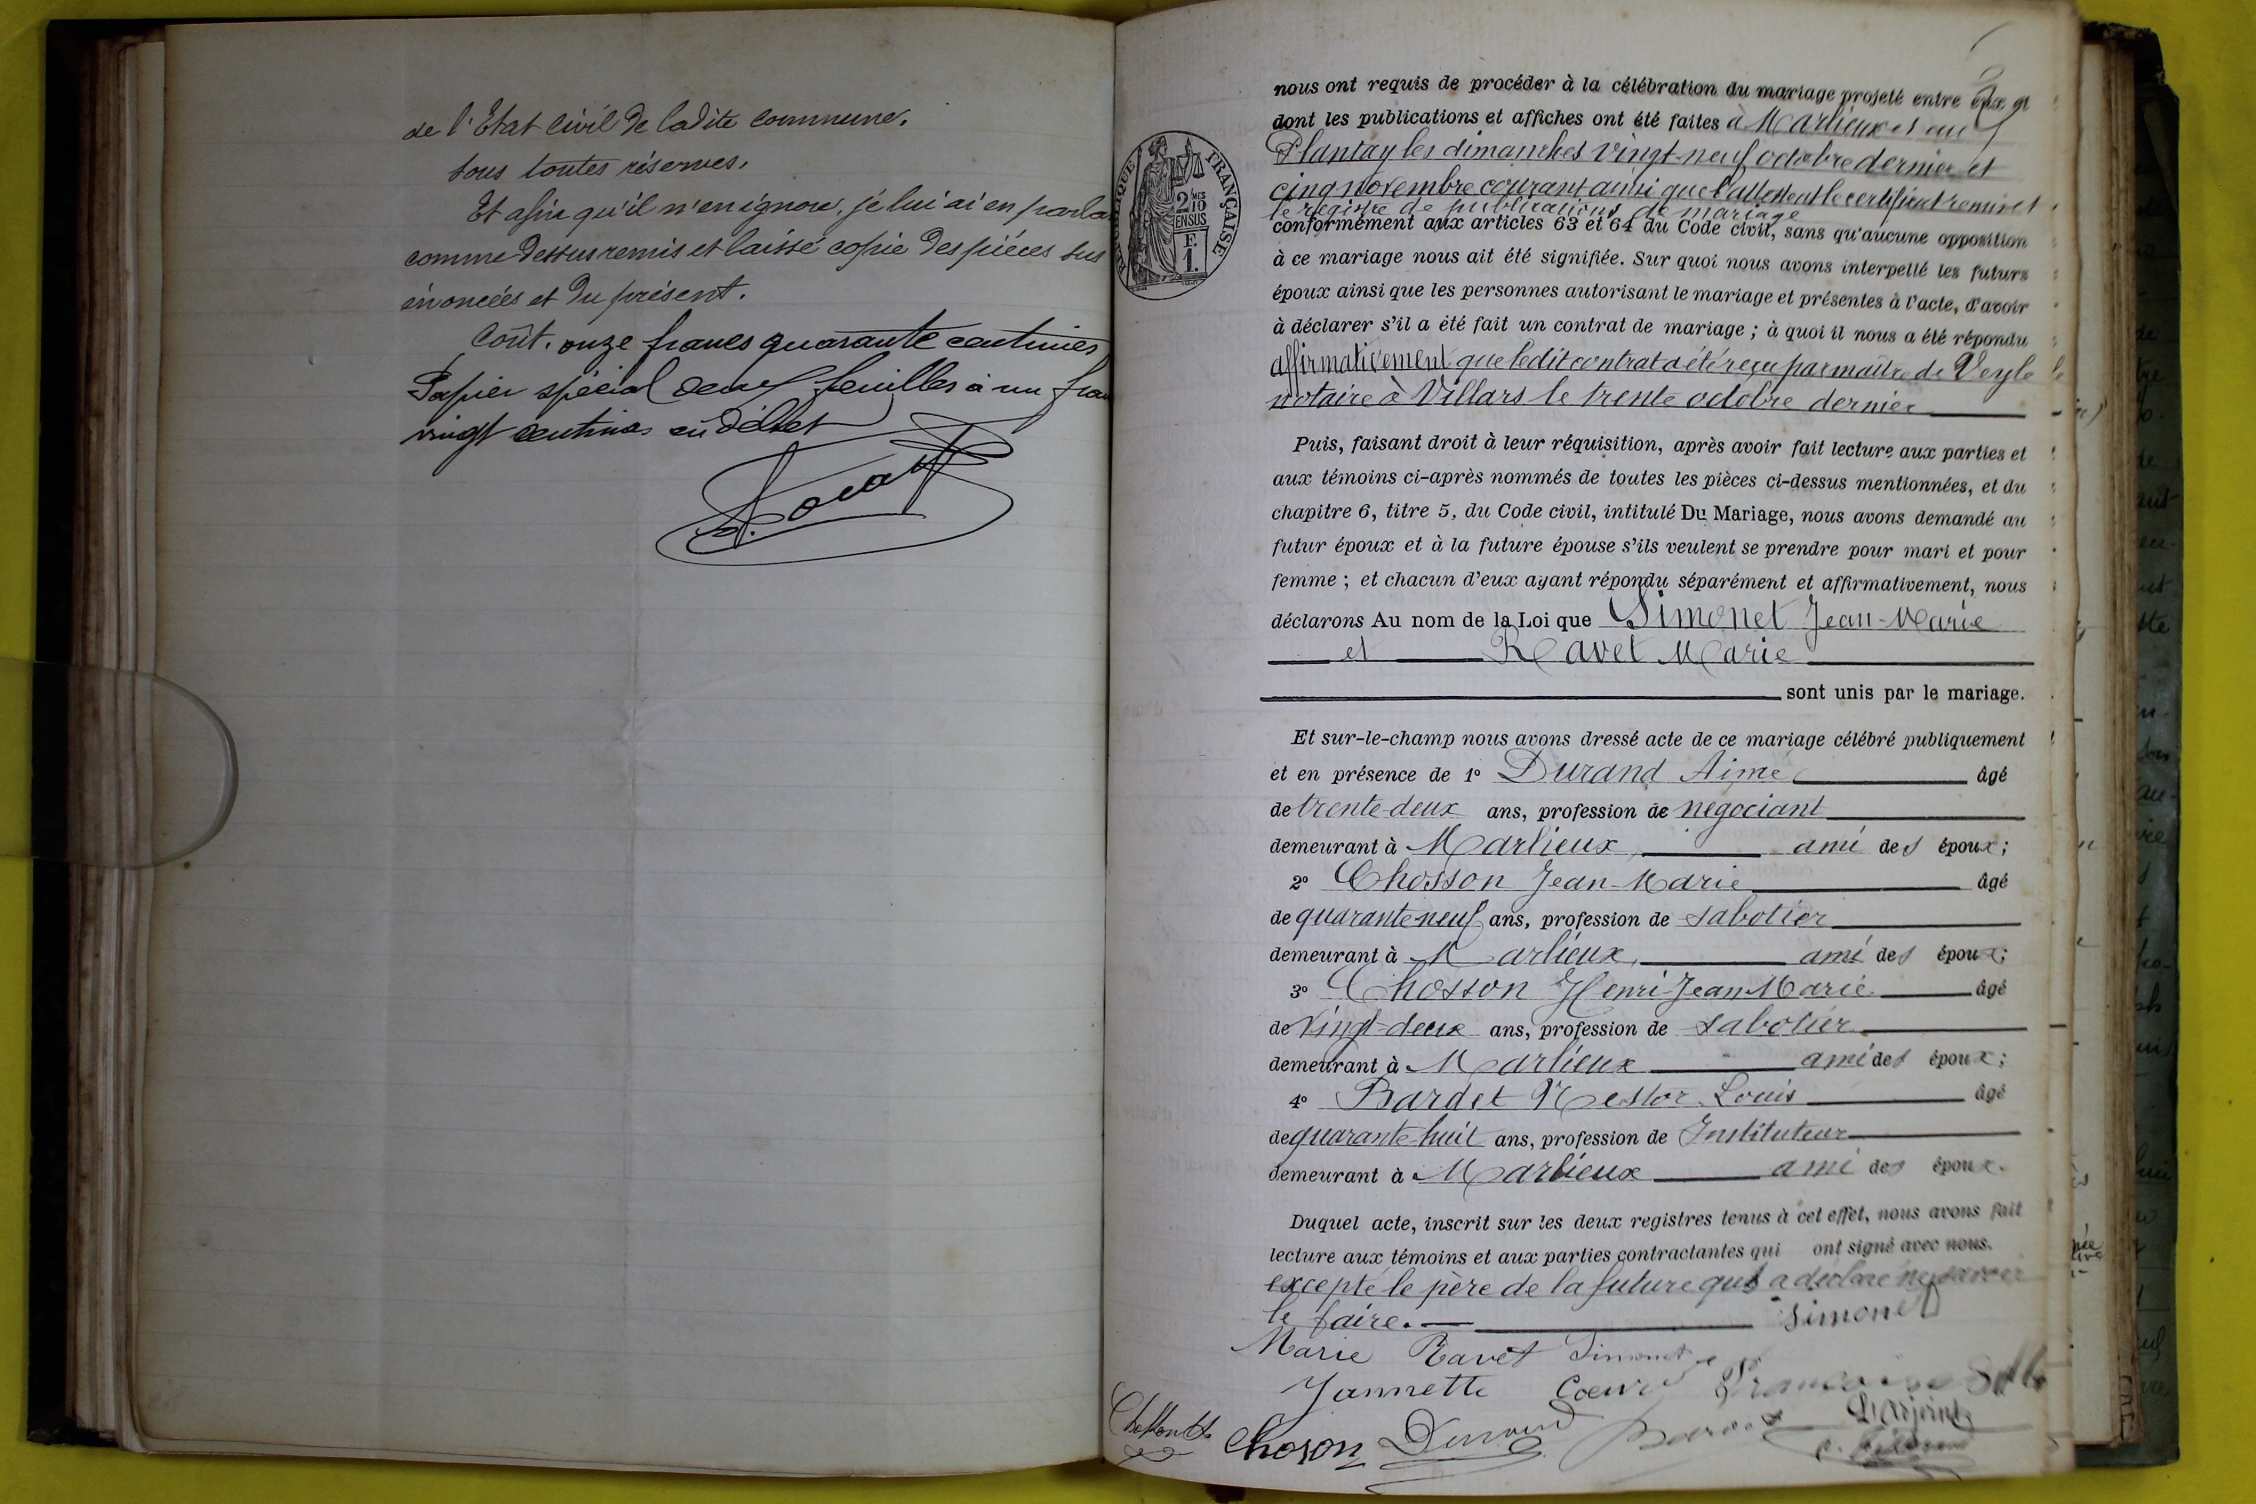 de l'Etat civil de ladite commune.
sous toutes réserves.
Et afin qu'il n'en ignore, je lui ai en parla
comme dessus remis et laissé copie des pièces sus
énoncées et du présent.
Coût. onze francs quarante centimes
Papier spécial deux feuilles à un fran
vingt centimes en débet
RÉPUBLIQUE FRANÇAISE
2/10
EN SUS
F.
1.
nous ont requis de procéder à la célébration du mariage projeté entre eux et
dont les publications et affiches ont été faites à Marlieux et au
Plantay les dimanches vingt-neuf octobre dernier et
cinq novembre courant ainsi que l'attestent le certificat remis et
le registre de publications de mariage
conformément aux articles 63 et 64 du Code civil, sans qu'aucune opposition
à ce mariage nous ait été signifiée. Sur quoi nous avons interpellé les futurs
époux ainsi que les personnes autorisant le mariage et présentes à l'acte, d'avoir
à déclarer s'il a été fait un contrat de mariage ; à quoi il nous a été répondu
affirmativement que ledit contrat a été reçu par maître de Veyle
notaire à Villars le trente octobre dernier
Puis, faisant droit à leur réquisition, après avoir fait lecture aux parties et
aux témoins ci-après nommés de toutes les pièces ci-dessus mentionnées, et du
chapitre 6, titre 5, du Code civil, intitulé Du Mariage, nous avons demandé au
futur époux et à la future épouse s'ils veulent se prendre pour mari et pour
femme ; et chacun d'eux ayant répondu séparément et affirmativement, nous
déclarons Au nom de la Loi que Simonet Jean-Marie
et Ravet Marie
sont unis par le mariage.
Et sur-le-champ nous avons dressé acte de ce mariage célébré publiquement
et en présence de 1º Durand Aimé âgé
de trente-deux ans, profession de négociant
demeurant à Marlieux, ami des époux;
2º Chosson Jean-Marie âgé
de quarante neuf ans, profession de sabotier
demeurant à Marlieux, ami des époux;
3º Chosson Henri-Jean Marie âgé
de vingt-deux ans, profession de sabotier
demeurant à Marlieux ami des époux;
4º Bardet Nestor Louis âgé
de quarante-huit ans, profession de Instituteur
demeurant à Marlieux ami des époux.
Duquel acte, inscrit sur les deux registres tenus à cet effet, nous avons fait
lecture aux témoins et aux parties contractantes qui ont signé avec nous.
excepté le père de la future qui a déclaré ne savoir
le faire.
Simonet
Marie Ravet Simonet
Jannette Coeur
Choson Durand Bardet L'adjoint